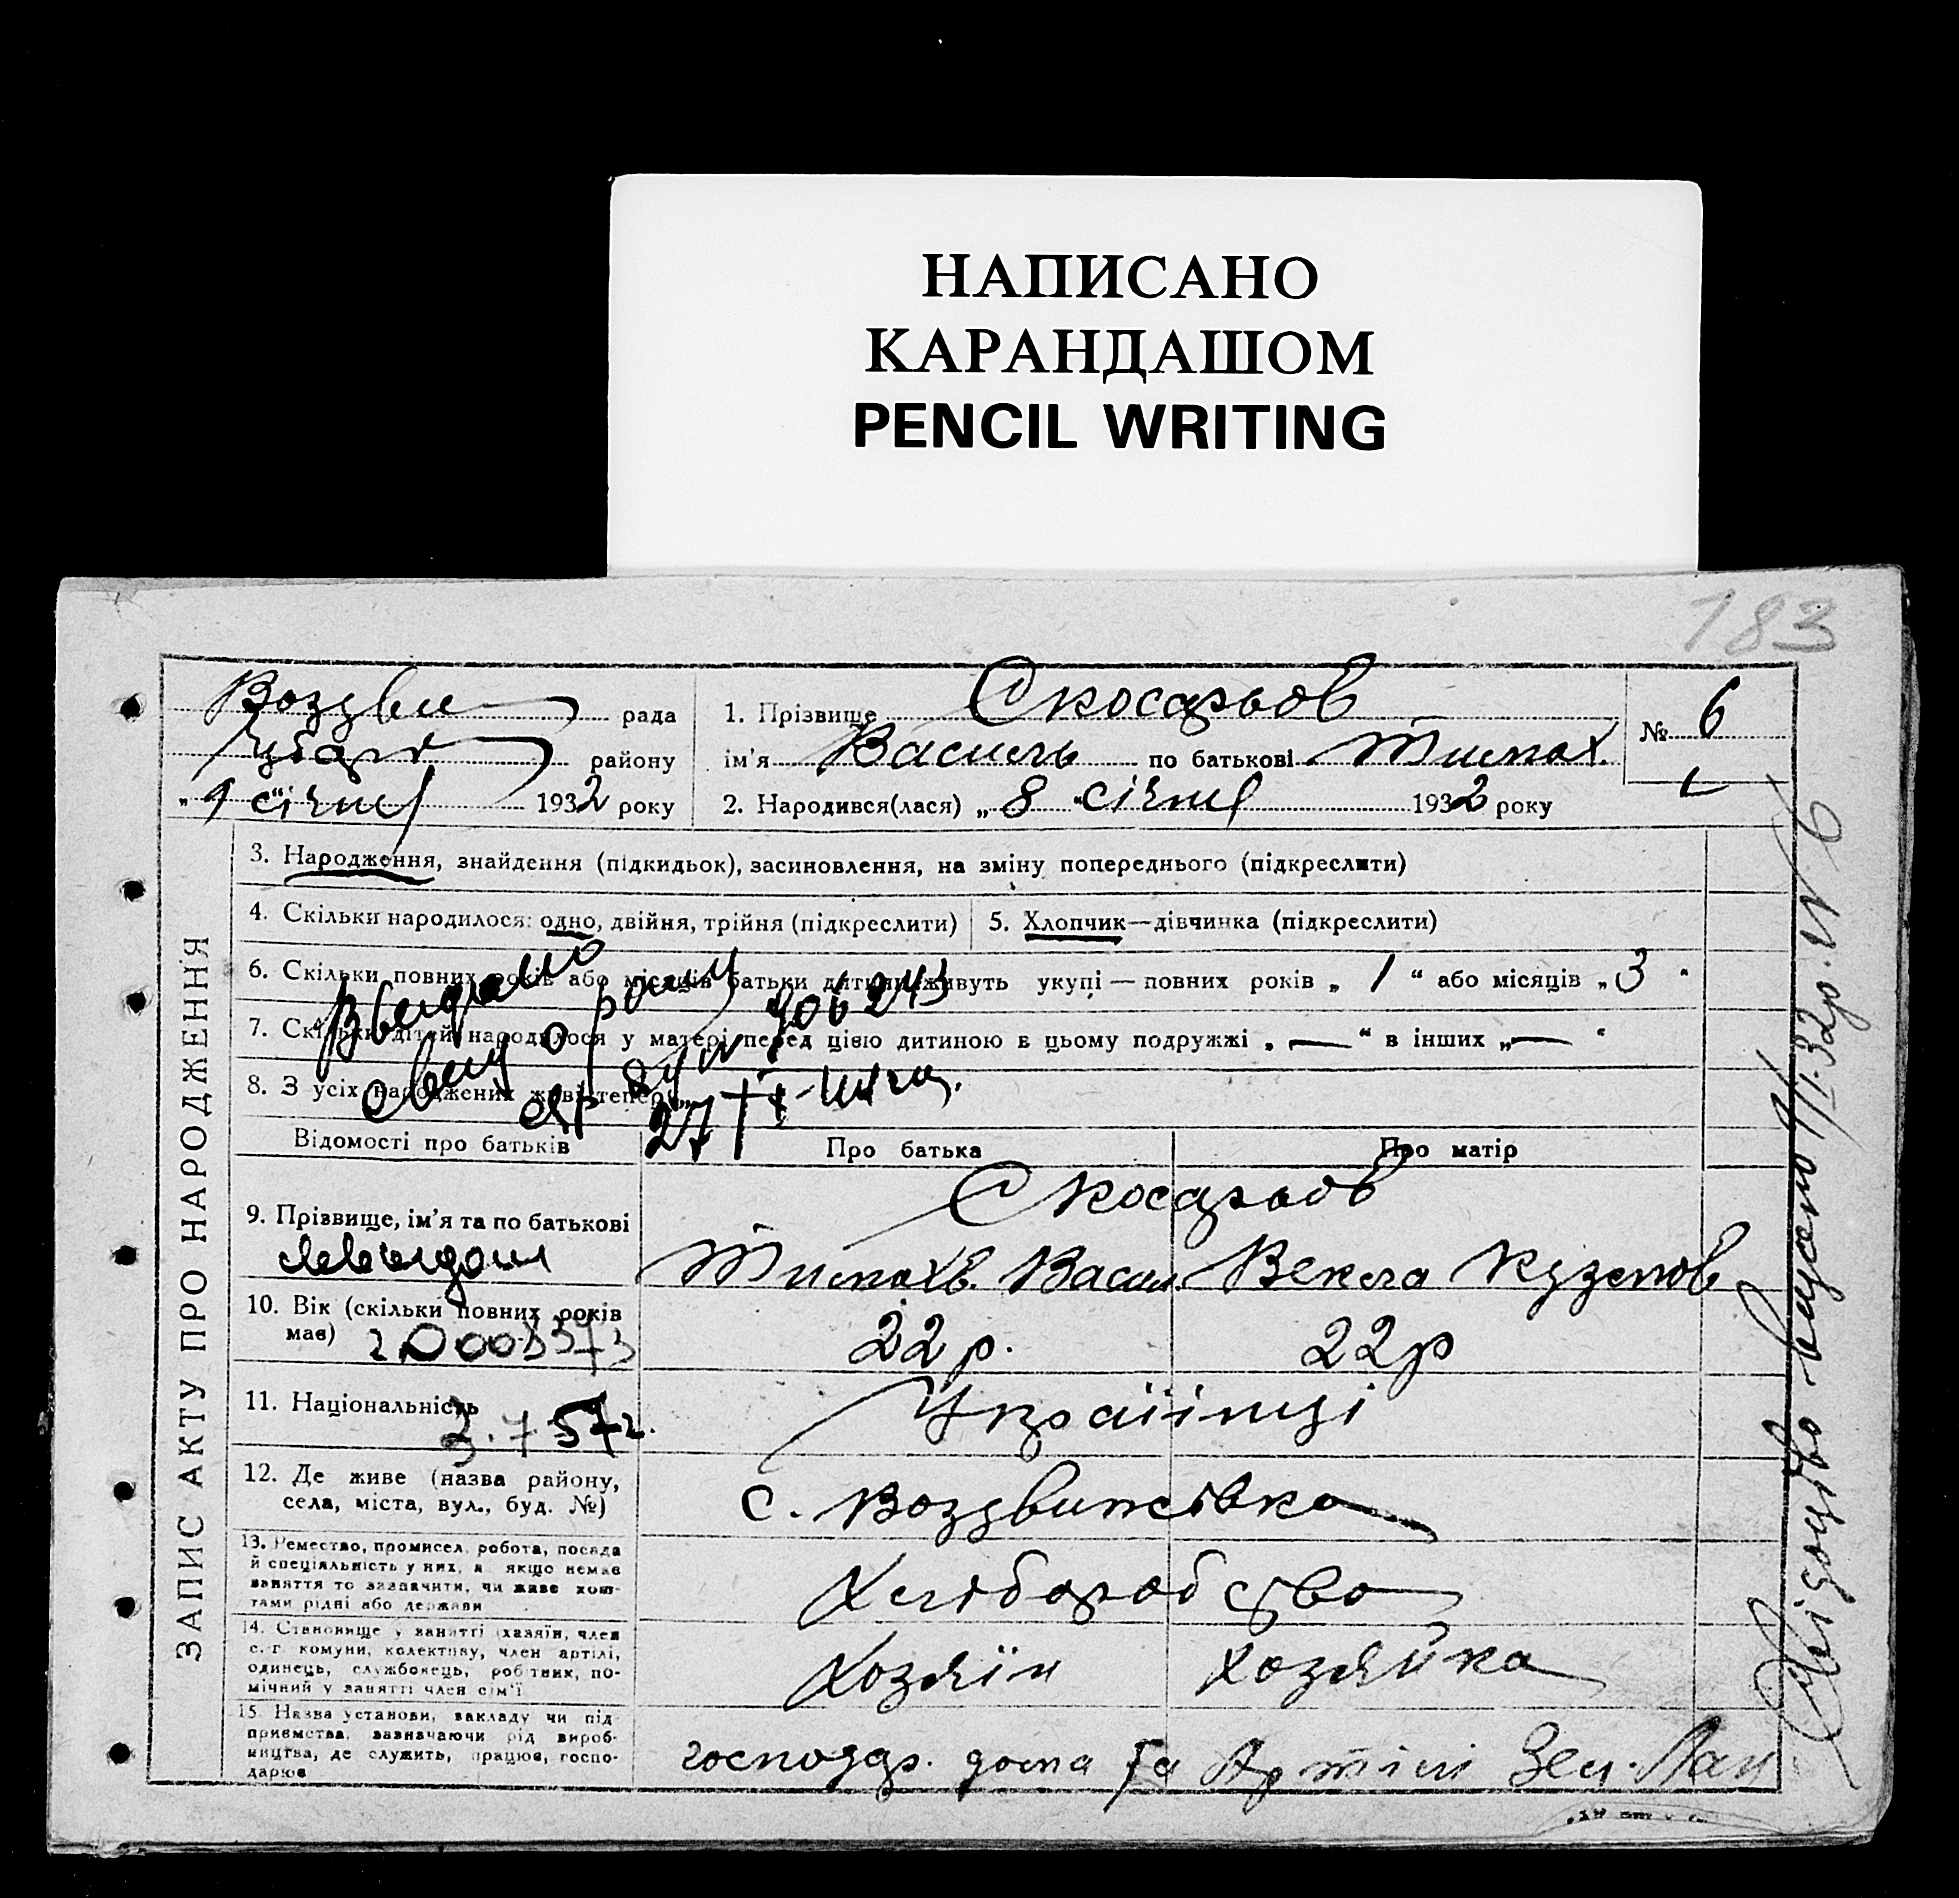 НАПИСАНО
КАРАНДАШОМ
PENCIL WRITING
183
Воздви рада
району
"9" січня 1932 року
1. Прізвище Скосарьов
ім'я Василь по батькові Тимох.
2. Народився(лася) „8" січня 1932 року
№ 6
ЗАПИС АКТУ ПРО НАРОДЖЕННЯ
3. Народження, знайдення (підкидьок), засиновлення, на зміну попереднього (підкреслити)
4. Скільки народилося: одно, двійня, трійня (підкреслити)
5. Хлопчик—дівчинка (підкреслити)
6. Скільки повних років або місяців батьки дитини живуть укупі — повних років „ 1 " або місяців „ 3 "
7. Скільки дітей народилося у матері перед цією дитиною в цьому подружжі „ — " в інших „ — "
8. З усіх народжених живі тепер
Відомості про батьків
Про батька
Про матір
9. Прізвище, ім'я та по батькові
Скосарьов
Тимохв. Васил.
Векла Кузьмов
10. Вік (скільки повних років має)
22 р.
22 р
11. Національність
Українці
3.7 57 г.
12. Де живе (назва району,
села, міста, вул., буд. №)
с. Воздвижівка
13. Ремество, промисел, робота, посада
й спеціяльність у них, а якщо немає
заняття то зазначити, чи живе кош-
тами рідні або держави
Хліборобство
14. Становище у занятті (хазяїн, член
с.-г. комуни, колективу, член артілі,
одинець, службовець, робітник, по-
мічний у занятті член сім'ї
Хозяїн
Хозяйка
15. Назва установи, закладу чи під-
приємства, зазначаючи рід вироб-
ництва, де служить, працює, госпо-
дарює
господар. дома та Артілі Зел. Лан
Свідоцтво видано 9/I-32р. № 6